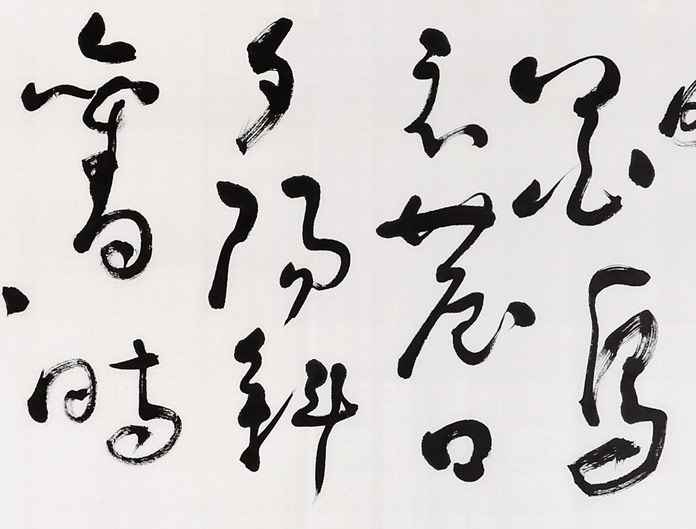 花烏
衣巷口
夕陽斜
舊時